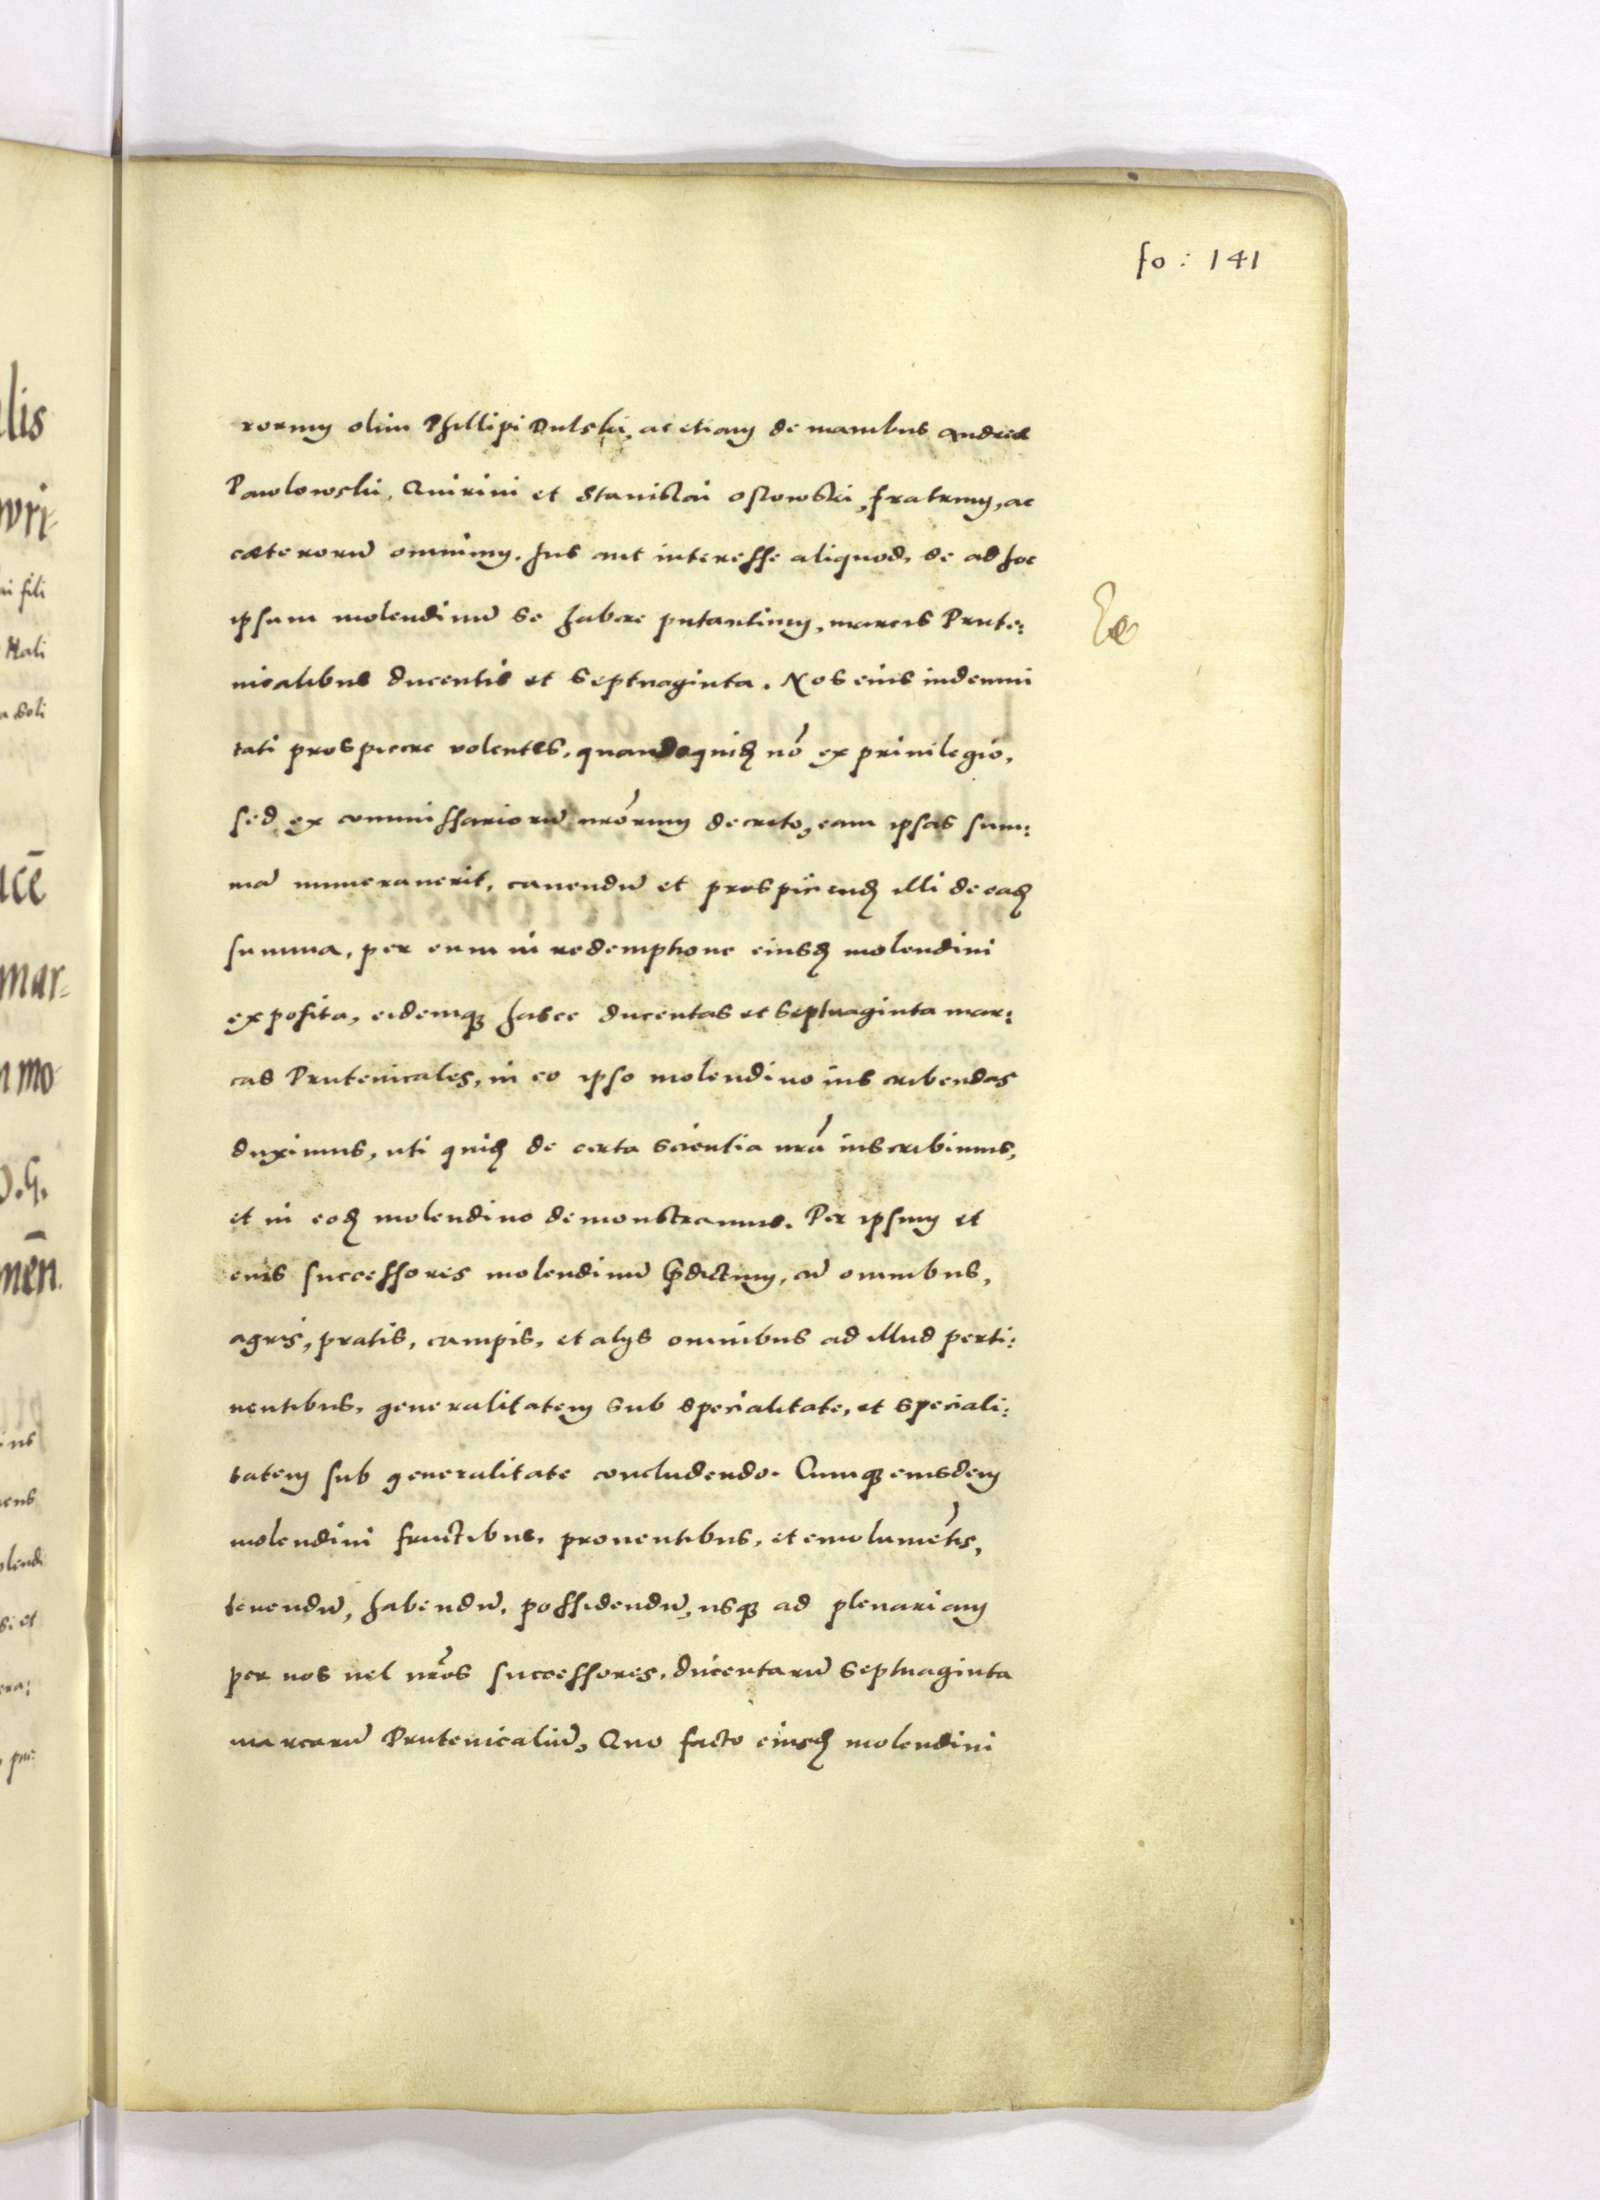 fo : 141
rorum olim Phillipi Dulski, ac etiam de manibus Andreæ
Pawlowski, Quirini et Stanislai Ostowski, fratrum, ac
cæterorũ omnium. Jus aut interesse aliquod, de ad hoc
ipsum molendinũ se habere putantium, marcis Prute:
nicalibus ducentis et septuaginta. Nos eius indemni
tati prospicere volentes, quandoquiđ nõ ex priuilegio,
sed ex commissariorũ nrõrum decreto, eam ipsas sum:
mã numerauerit, cauendũ et prospiciendđ illi de eađ
summa, per eum in redemptione eiusđ molendini
exposita, eidemqȝ hasce ducentas et septuaginta mar:
cas Prutenicales, in eo ipso molendino inscribendas
duximus, uti quiđ de certa scientia nrã inscribimus,
et in eođ molendino demonstramus. Per ipsum et
eius successores molendinũ p̃dictum, cũ omnibus,
agris, pratis, campis, et alys omnibus ad illud perti:
nentibus, generalitatem sub specialitate, et speciali:
tatem sub generalitate concludendo. Cumqȝ eiusdem
molendini fructibus, prouentibus, et emolumẽtis,
tenendũ, habendũ, possidendũ, usqȝ ad plenariam
per nos uel nrõs successores, ducentarũ septuaginta
marcarũ Prutenicaliũ, Quo facto eiusđ molendini